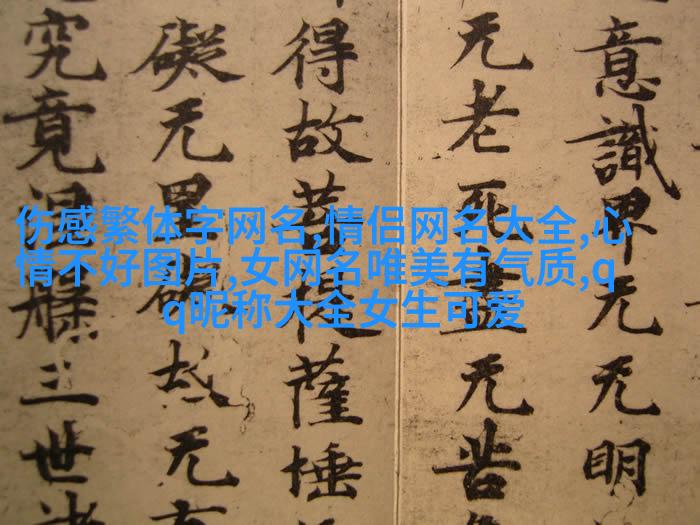 伤感繁体字网名,情侣网名大全,心
情不好图片,女网名唯美有气质,q
q昵称大全女生可爱
意識界无无明
无老死盡无苦
得故菩提薩埵
礙无罣礙故无有
究竟涅槃三世諸